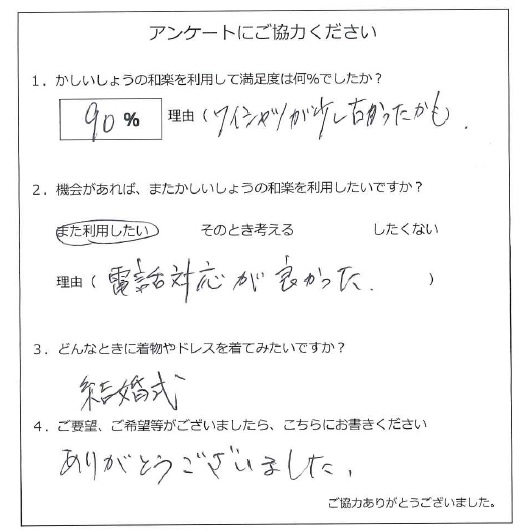 アンケートにご協力ください
1．かしいしょうの和楽を利用して満足度は何％でしたか？
90 ％ 理由（ワイシャツが少し古かったかも）．
2．機会があれば、またかしいしょうの和楽を利用したいですか？
また利用したい そのとき考える したくない
理由（電話対応が良かった．）
3．どんなときに着物やドレスを着てみたいですか？
結婚式
4．ご要望、ご希望等がございましたら、こちらにお書きください
ありがとうございました、
ご協力ありがとうございました。